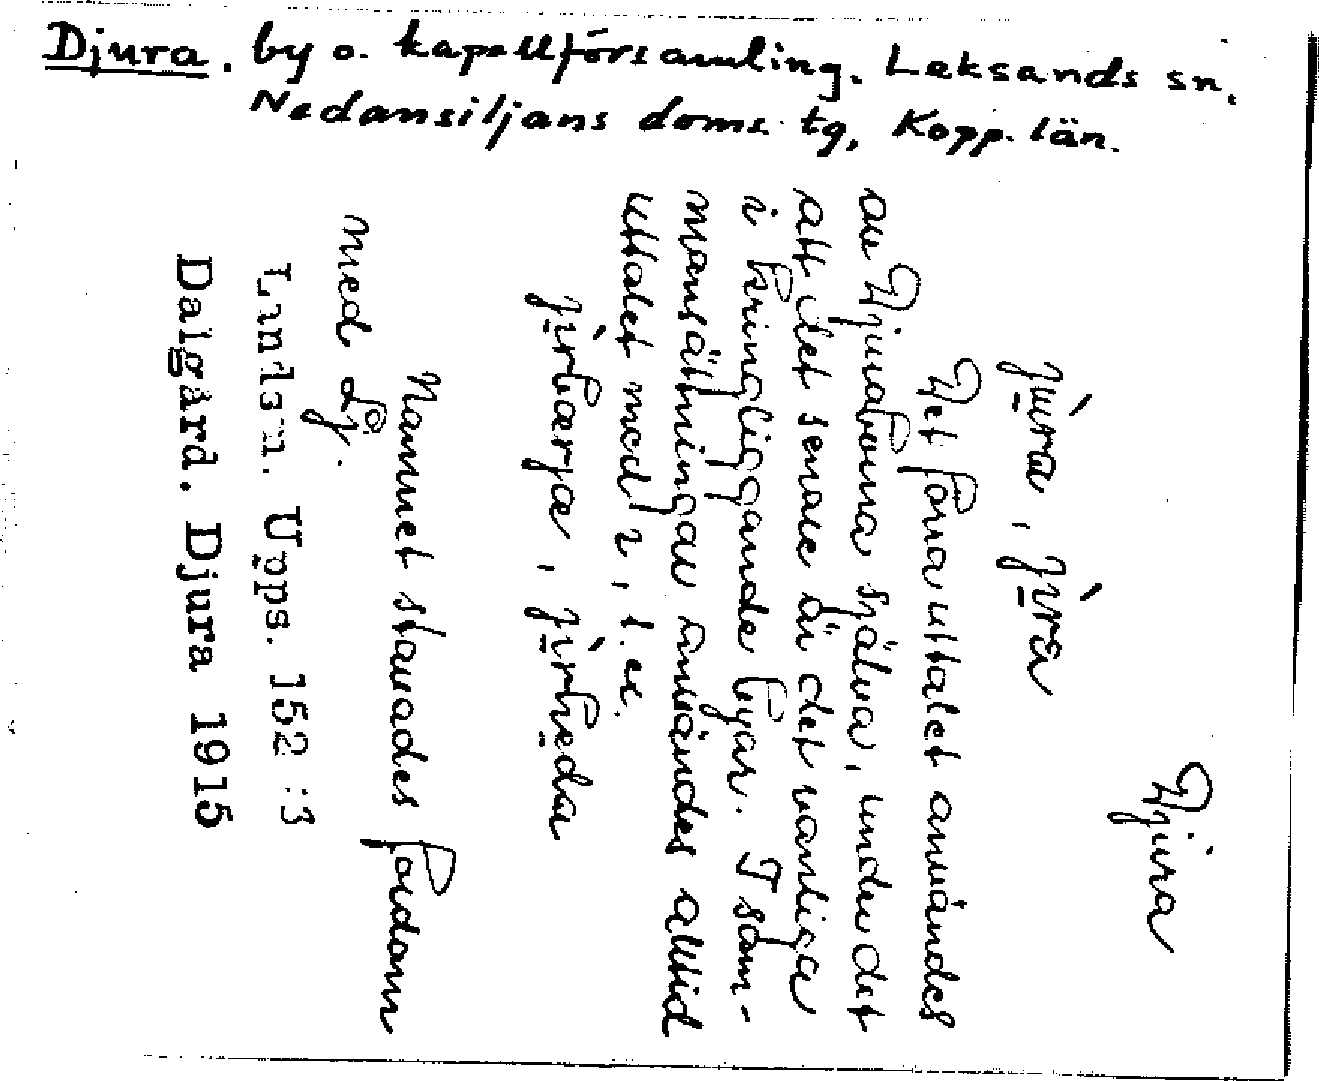 Djura. by o. kapellförsamling, Leksands sn.
Nedansiljans doms. tg, Kopp. län.
Djura
jùra, jùra
Det förra uttalet användes
av Djuraborna själva, under det
att det senare är det vanliga
i kringliggande byar. I sam-
mansättningar användes alltid
uttalet med
t. ex.
Namnet stavades fordom
med Lj.
Landsm. Upps. 152:3
Dalgård. Djura 1915